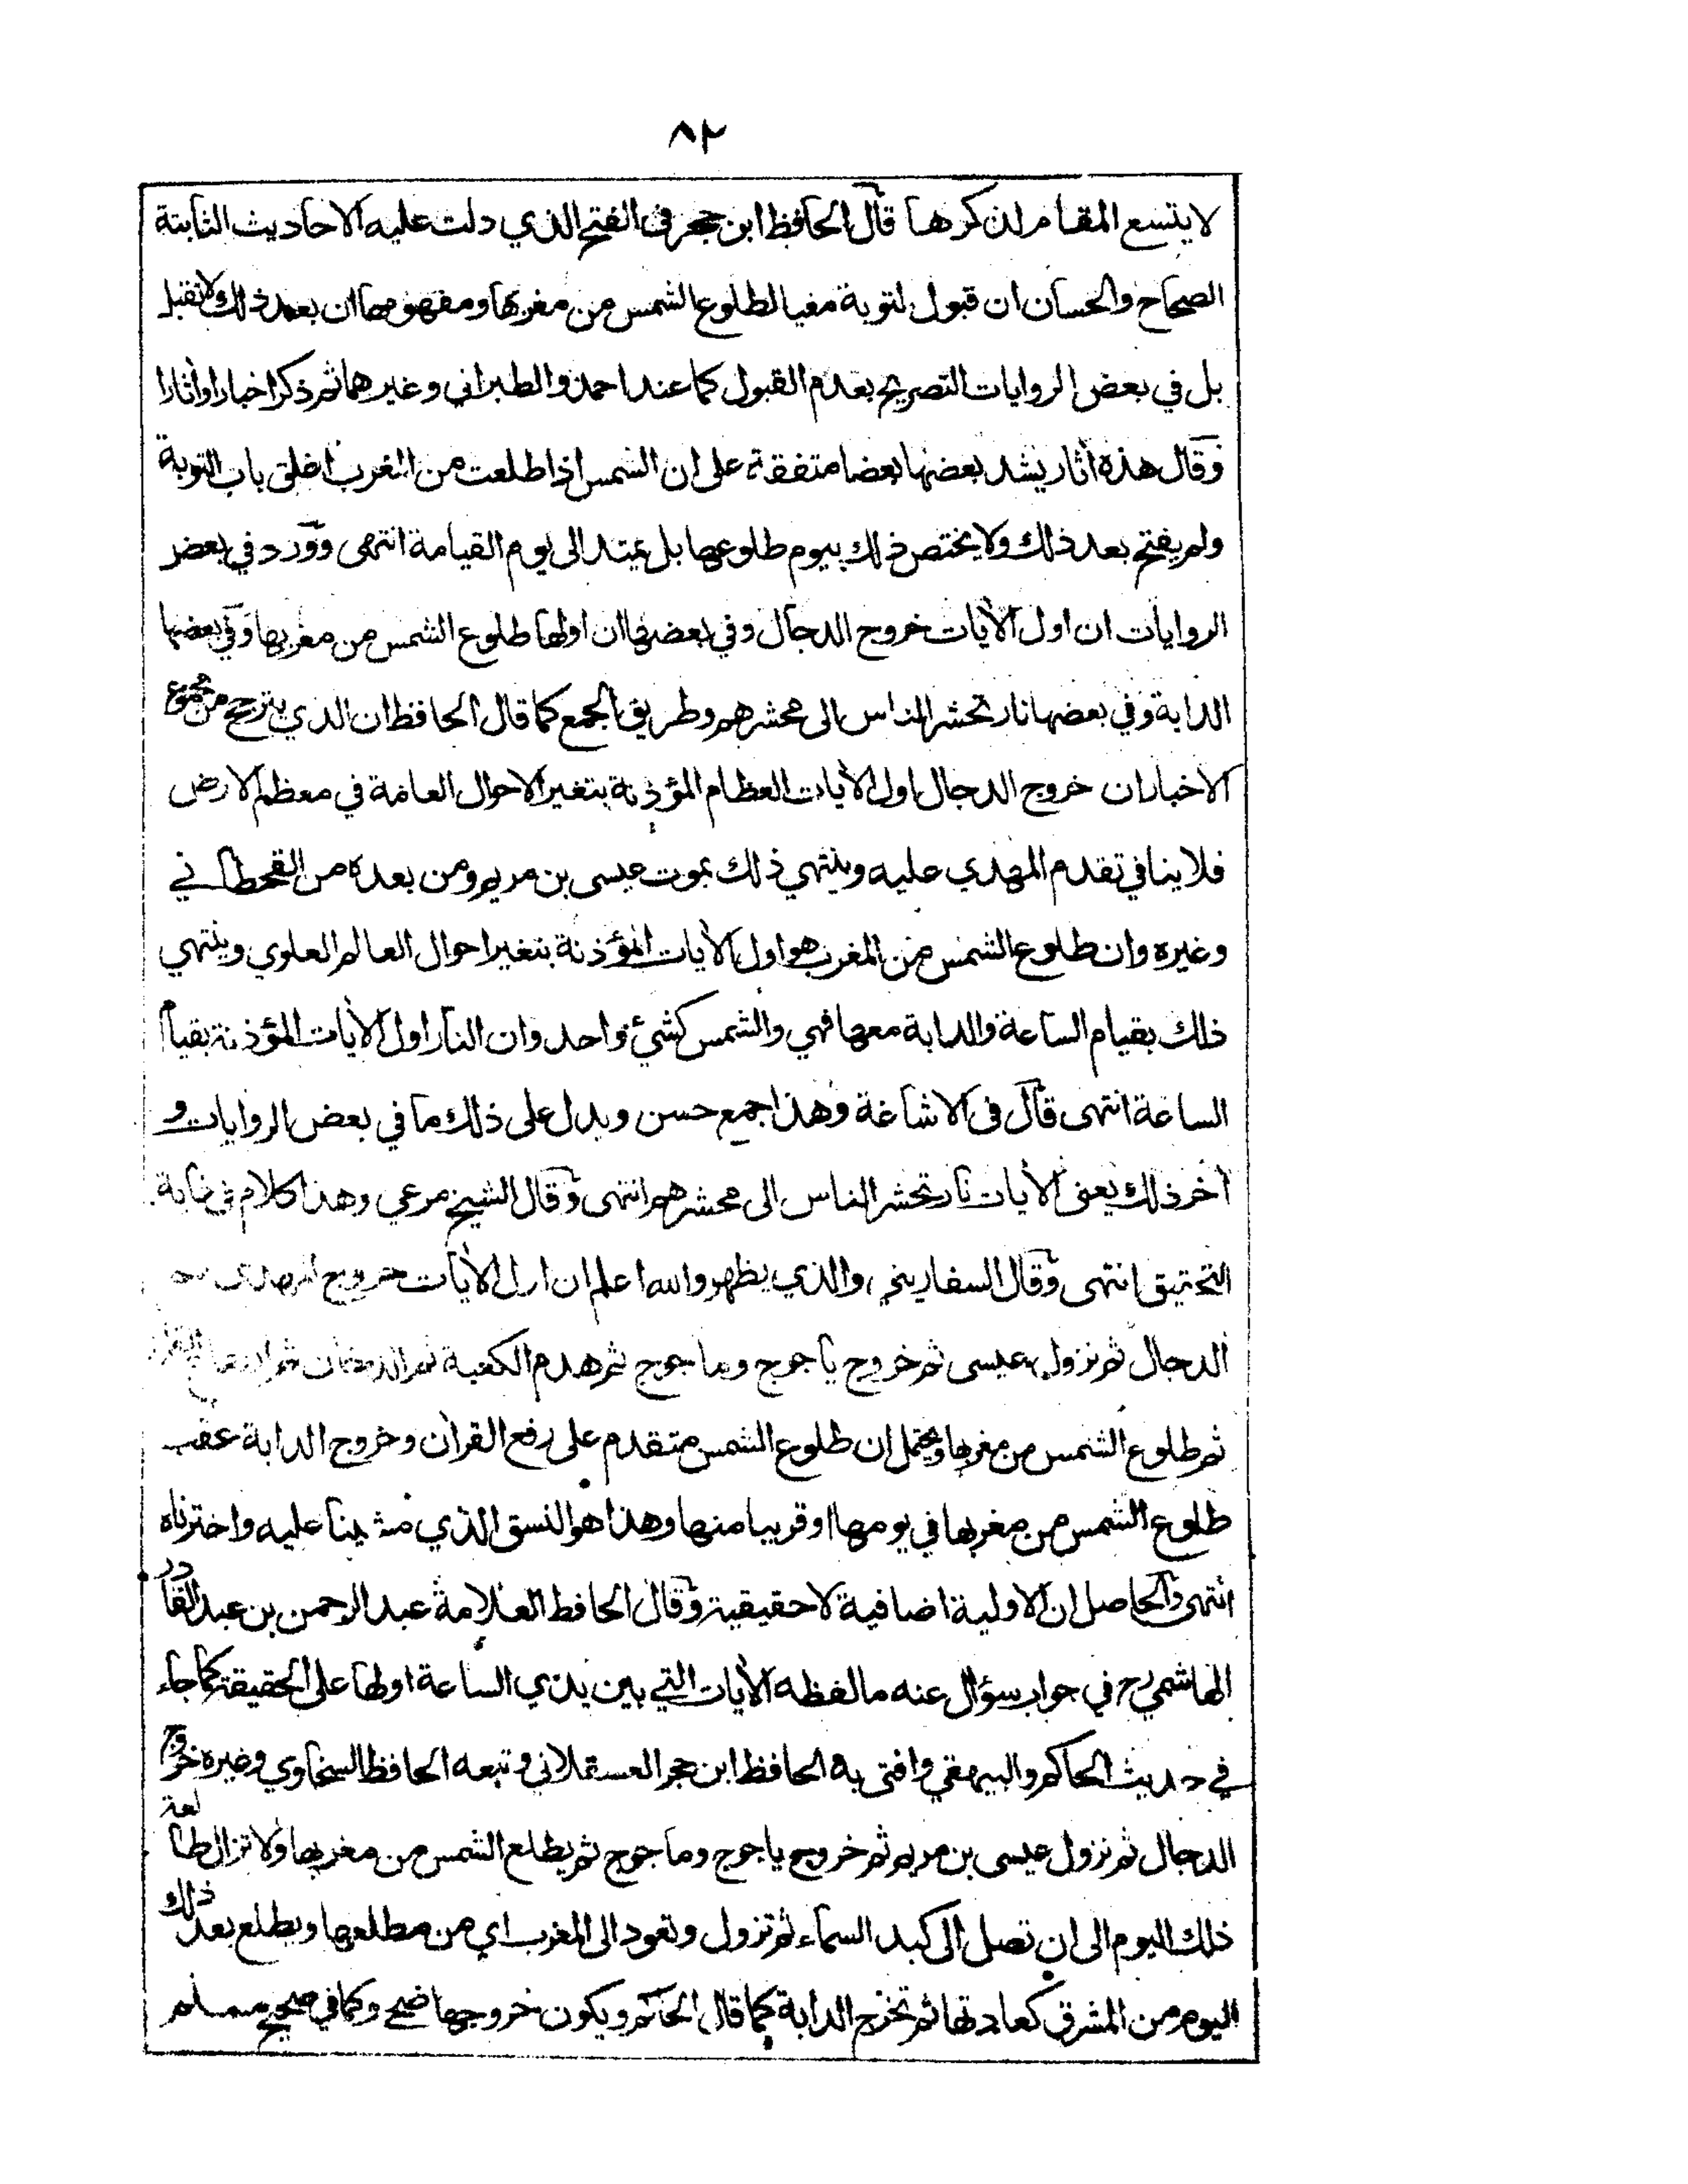 ٨٢
لا يتسع المقام لذكرها قال الحافظ ابن حجر فى الفتح الذي دلت عليه الاحاديث الثابتة
الصحاح والحسان ان قبول التوبة مغيا لطلوع الشمس من مغربها ومفهومها ان بعد ذلك ولا تقبل
بل في بعض الروايات التصريح بعدم القبول كما عند احمد والطبراني وغيرهما ثم ذكر اخبارا وأثارا
وقال هذه أثار يشد بعضها بعضا متفقة على ان الشمس اذا طلعت من المغرب اغلق باب التوبة
ولم يفتح بعد ذلك ولا يختص ذلك بيوم طلوعها بل يمتد الى يوم القيامة انتهى وورد في بعض
الروايات ان اول الأيات خروج الدجال وفي بعضها ان اولها طلوع الشمس من مغربها وفي بعضها
الدابة وفي بعضها نار تحشر الناس الى محشرهم وطريق الجمع كما قال الحافظ ان الذي يترجح من مجموع
الاخبار ان خروج الدجال اول الأيات العظام المؤذنة بتغير الاحوال العامة في معظم الارض
فلا ينافي تقدم المهدي عليه وينتهي ذلك بموت عيسى بن مريم ومن بعده من القحطاني
وغيره وان طلوع الشمس من المغرب هو اول الأيات المؤذنة بتغير احوال العالم العلوي وينتهي
ذلك بقيام الساعة والدابة معها فهي والشمس كشيئ واحد وان النار اول الأيات المؤذنة بقيام
الساعة انتهى قال فى الاشاعة وهذا جمع حسن ويدل على ذلك ما في بعض الروايات و
أخر ذلك يعنى الأيات نار تحشر الناس الى محشرهم انتهى وقال الشيخ مرعي وهذا كلام فى غاية
التحقيق انتهى وقال السفاريني والذي يظهر والله اعلم ان اول الأيات خروج المهدى
الدجال ثم نزول عيسى ثم خروج ياجوج وماجوج ثم هدم الكعبة ثم الدخان ثم
ثم طلوع الشمس من مغربها ويحتمل ان طلوع الشمس متقدم على رفع القرأن وخروج الدابة عقب
طلوع الشمس من مغربها في يومها او قريبا منها وهذا هو النسق الذي مشينا عليه واخترناه
انتهى والحاصل ان الاولية اضافية لا حقيقية وقال الحافظ العلامة عبد الرحمن بن عبد القادر
الهاشمي رح في جواب سؤال عنه ما لفظه الأيات التي بين يدي الساعة اولها على الحقيقة كما جاء
في حديث الحاكم والبيهقي وافتى به الحافظ ابن حجر العسقلاني وتبعه الحافظ السخاوي وغيره خروج
الدجال ثم نزول عيسى بن مريم ثم خروج ياجوج وماجوج ثم يطلع الشمس من مغربها ولا تزال طالعة
ذلك اليوم الى ان تصل الى كبد السماء ثم تزول وتعود الى المغرب اي من مطلعها ويطلع بعد ذلك
اليوم من المشرق كعادتها ثم تخرج الدابة كما قال الحاكم ويكون خروجها ضحى وكما في صحيح مسلم